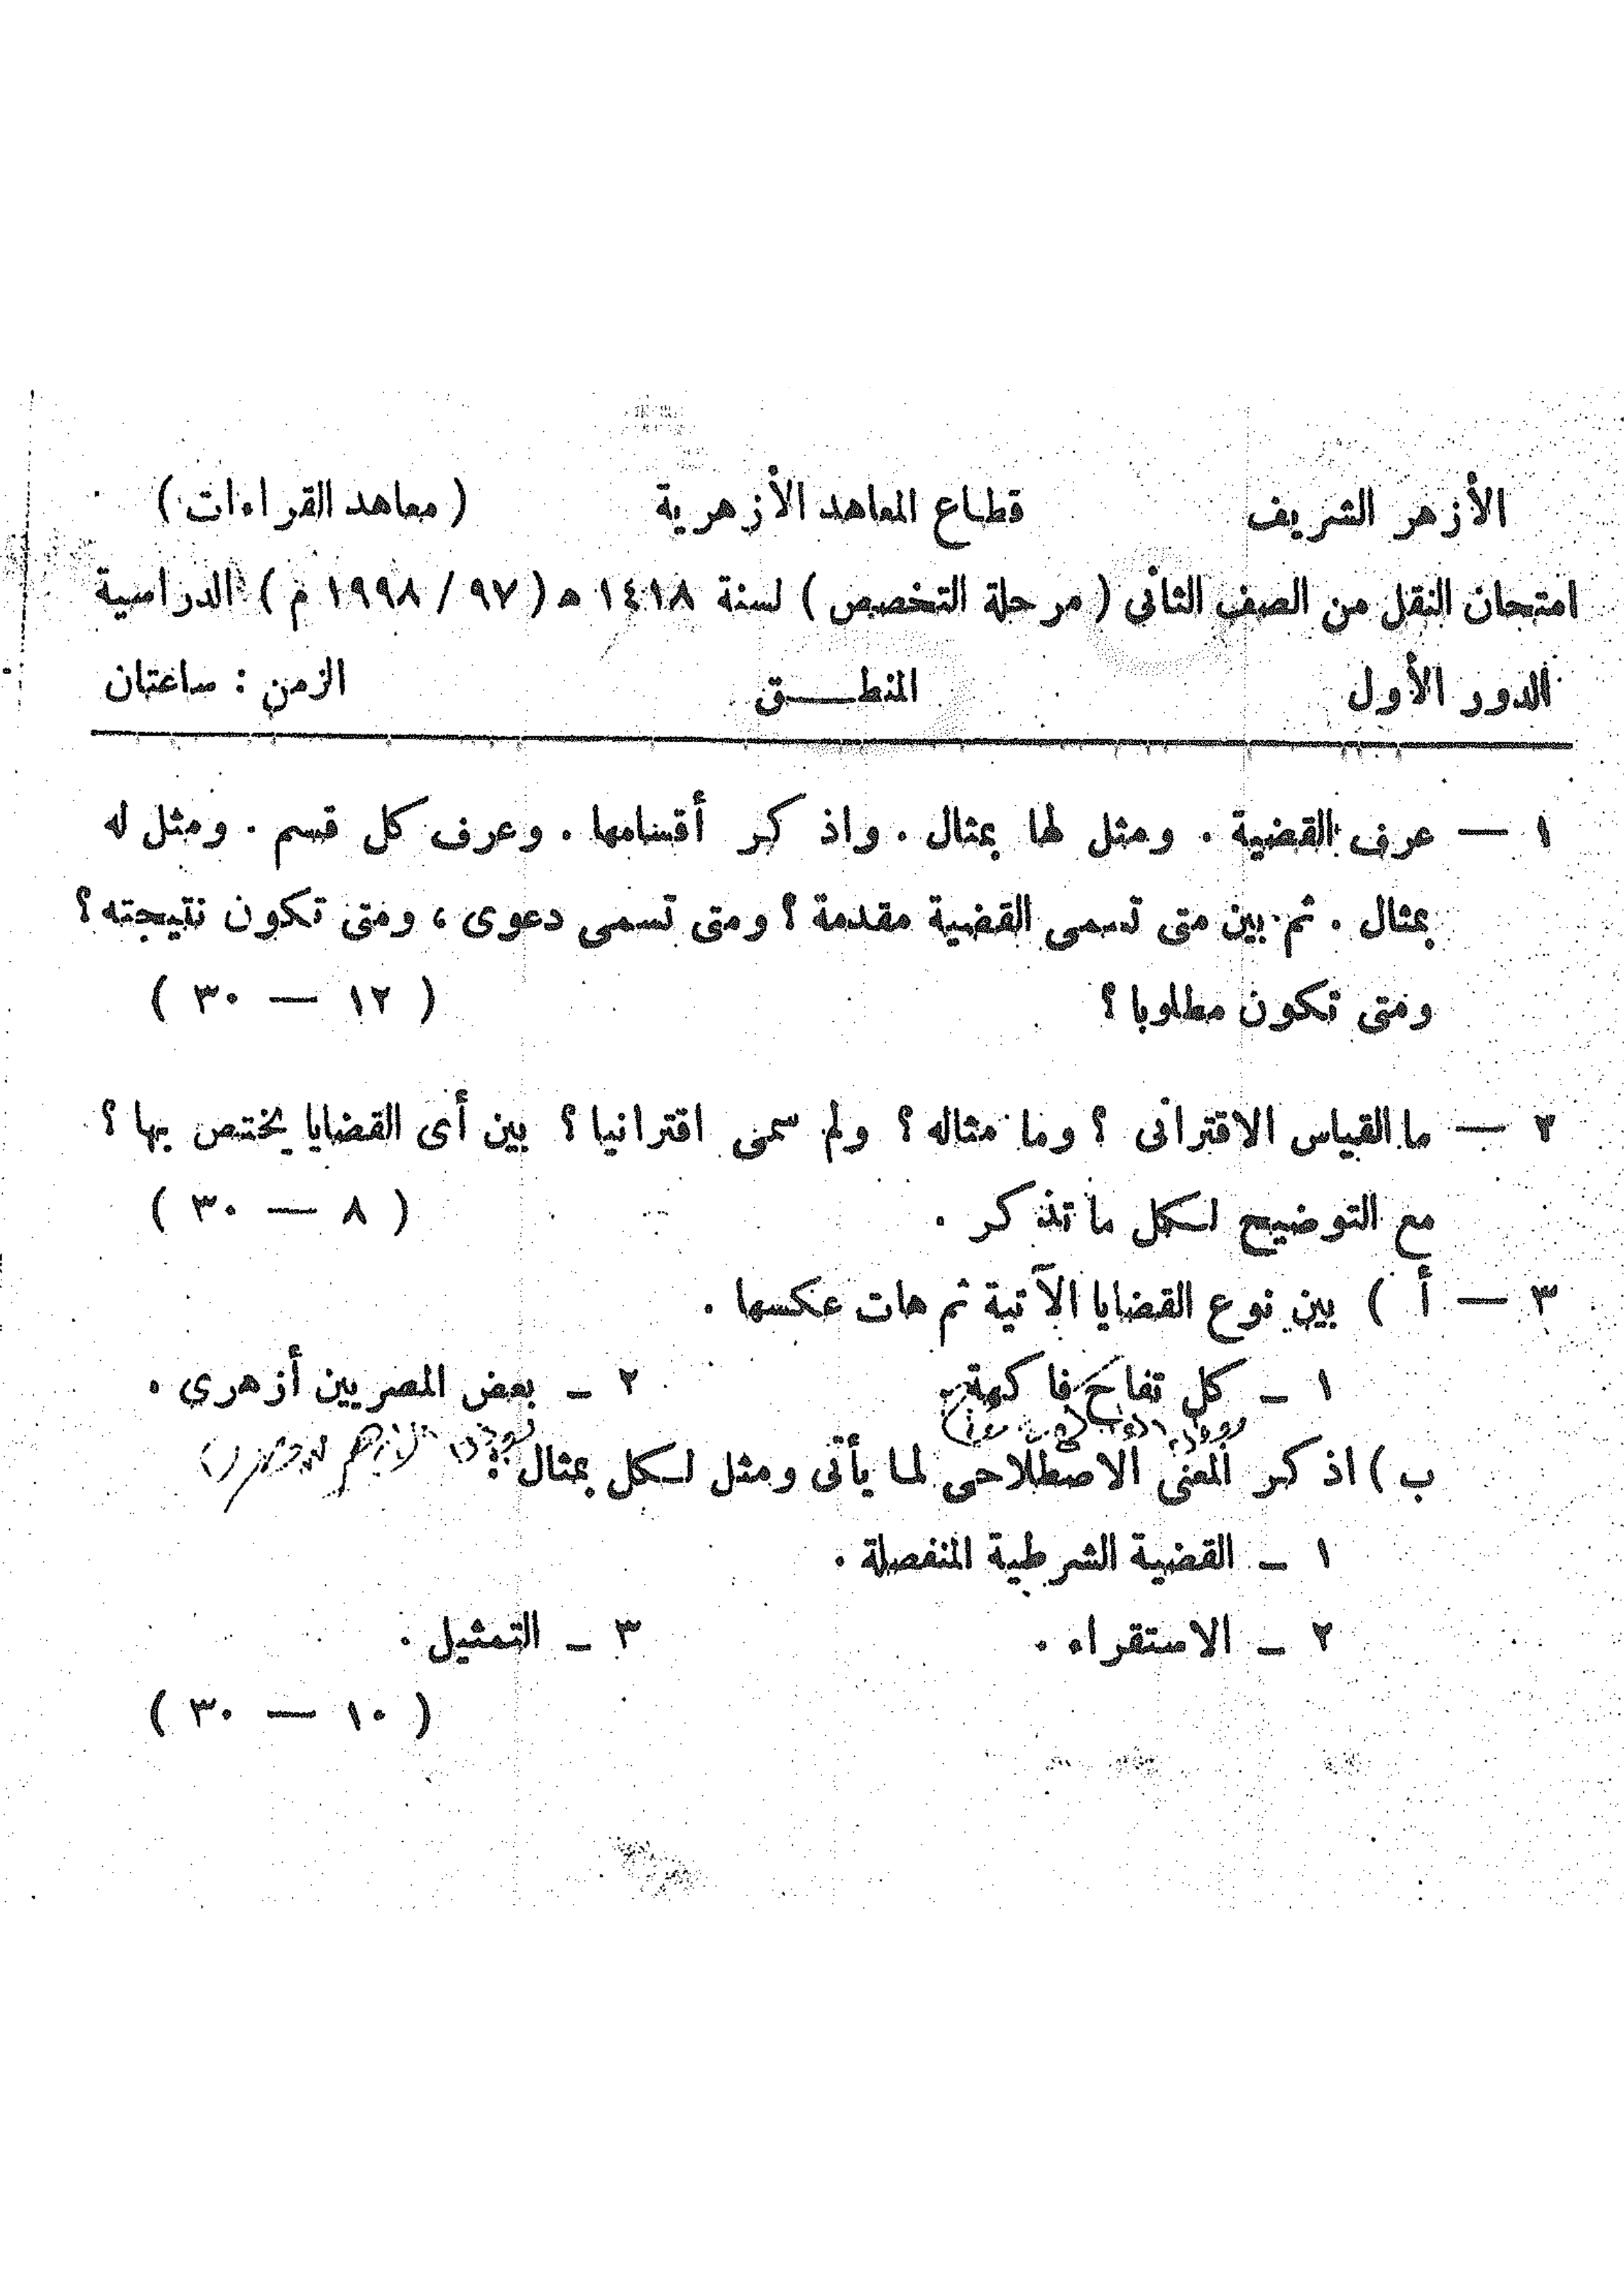 الأزهر الشريف قطاع المعاهد الأزهرية ( معاهد القراءات )
امتحان النقل من الصف الثانى ( مرحلة التخصص ) لسنة ١٤١٨ ه ( ٩٧ / ١٩٩٨ م ) الدراسية
الدور الأول المنطــــق الزمن : ساعتان
١ — عرف القضية . ومثل لها بمثال . واذكر أقسامها . وعرف كل قسم . ومثل له
بمثال . ثم بين متى تسمى القضية مقدمة ؟ ومتى تسمى دعوى ، ومتى تكون نتيجته ؟
ومتى تكون مطلوبا ؟ ( ١٢ — ٣٠ )
٢ — ما القياس الاقترانى ؟ وما مثاله ؟ ولم سمى اقترانيا ؟ بين أى القضايا يختص بها ؟
مع التوضيح لكل ما تذكر . ( ٨ — ٣٠ )
٣ — أ ) بين نوع القضايا الآتية ثم هات عكسها .
١ ــ كل تفاح فاكهة . ٢ ــ بعض المصريين أزهرى .
ب ) اذكر المعنى الاصطلاحى لما يأتى ومثل لكل بمثال :
١ ــ القضية الشرطية المنفصلة .
٢ ــ الاستقراء . ٣ ــ التمثيل .
( ١٠ — ٣٠ )